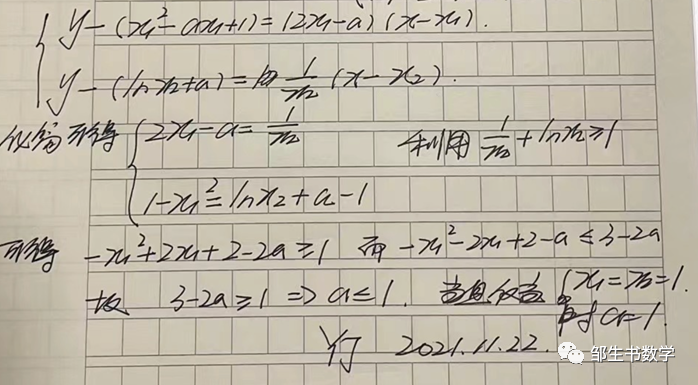 y-(x₁²-ax₁+1)=(2x₁-a)(x-x₁).
y-(lnx₂+a)=1/x₂(x-x₂).
可得 { 2x₁-a=1/x₂ 利用 1/x₂+lnx₂≥1
1-x₁²=lnx₂+a-1
可得 -x₁²+2x₁+2-2a≥1 而 -x₁²-2x₁+2-a≤3-2a
故 3-2a≥1 => a≤1. 当且仅当 { x₁=x₂=1.
时 a=1.
2021.11.22.
邹生书数学